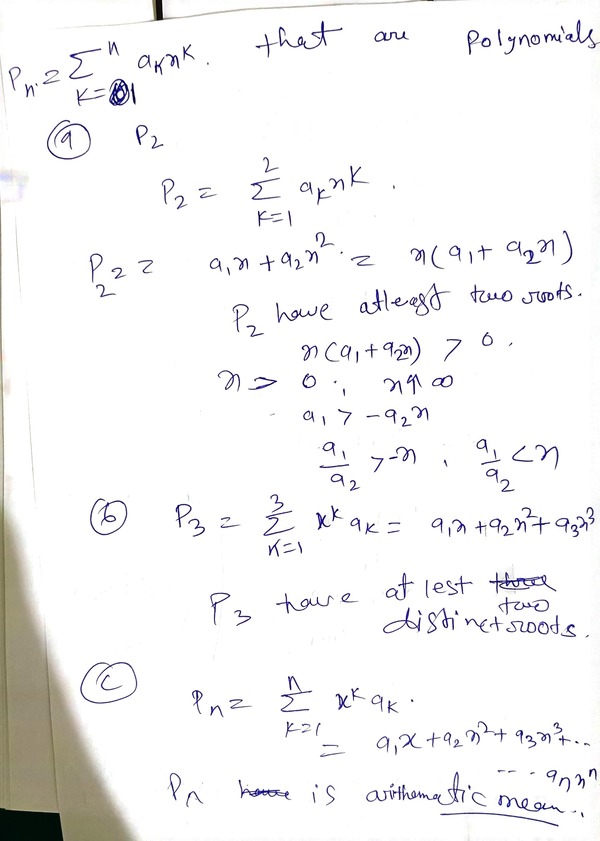 Pn = Σ^n_{K=1} aₖxᵏ. that are polynomials
(a) P₂
P₂ = Σ^2_{K=1} aₖxᴷ.
P₂ = a₁x + a₂x². = x(a₁ + a₂x)
P₂ have atleast two roots.
x(a₁ + a₂x) > 0.
x > 0 ., x ≠ ∞
a₁ > -a₂x
a₁/a₂ > -x , a₁/a₂ < x
(b) P₃ = Σ^3_{K=1} xᵏ aₖ = a₁x + a₂x² + a₃x³
P₃ have at lest two
distinct roots.
(c) Pn = Σ^n_{k=1} xᵏ aₖ.
= a₁x + a₂x² + a₃x³ + ...
... aₙxⁿ
Pn is arithematic mean..